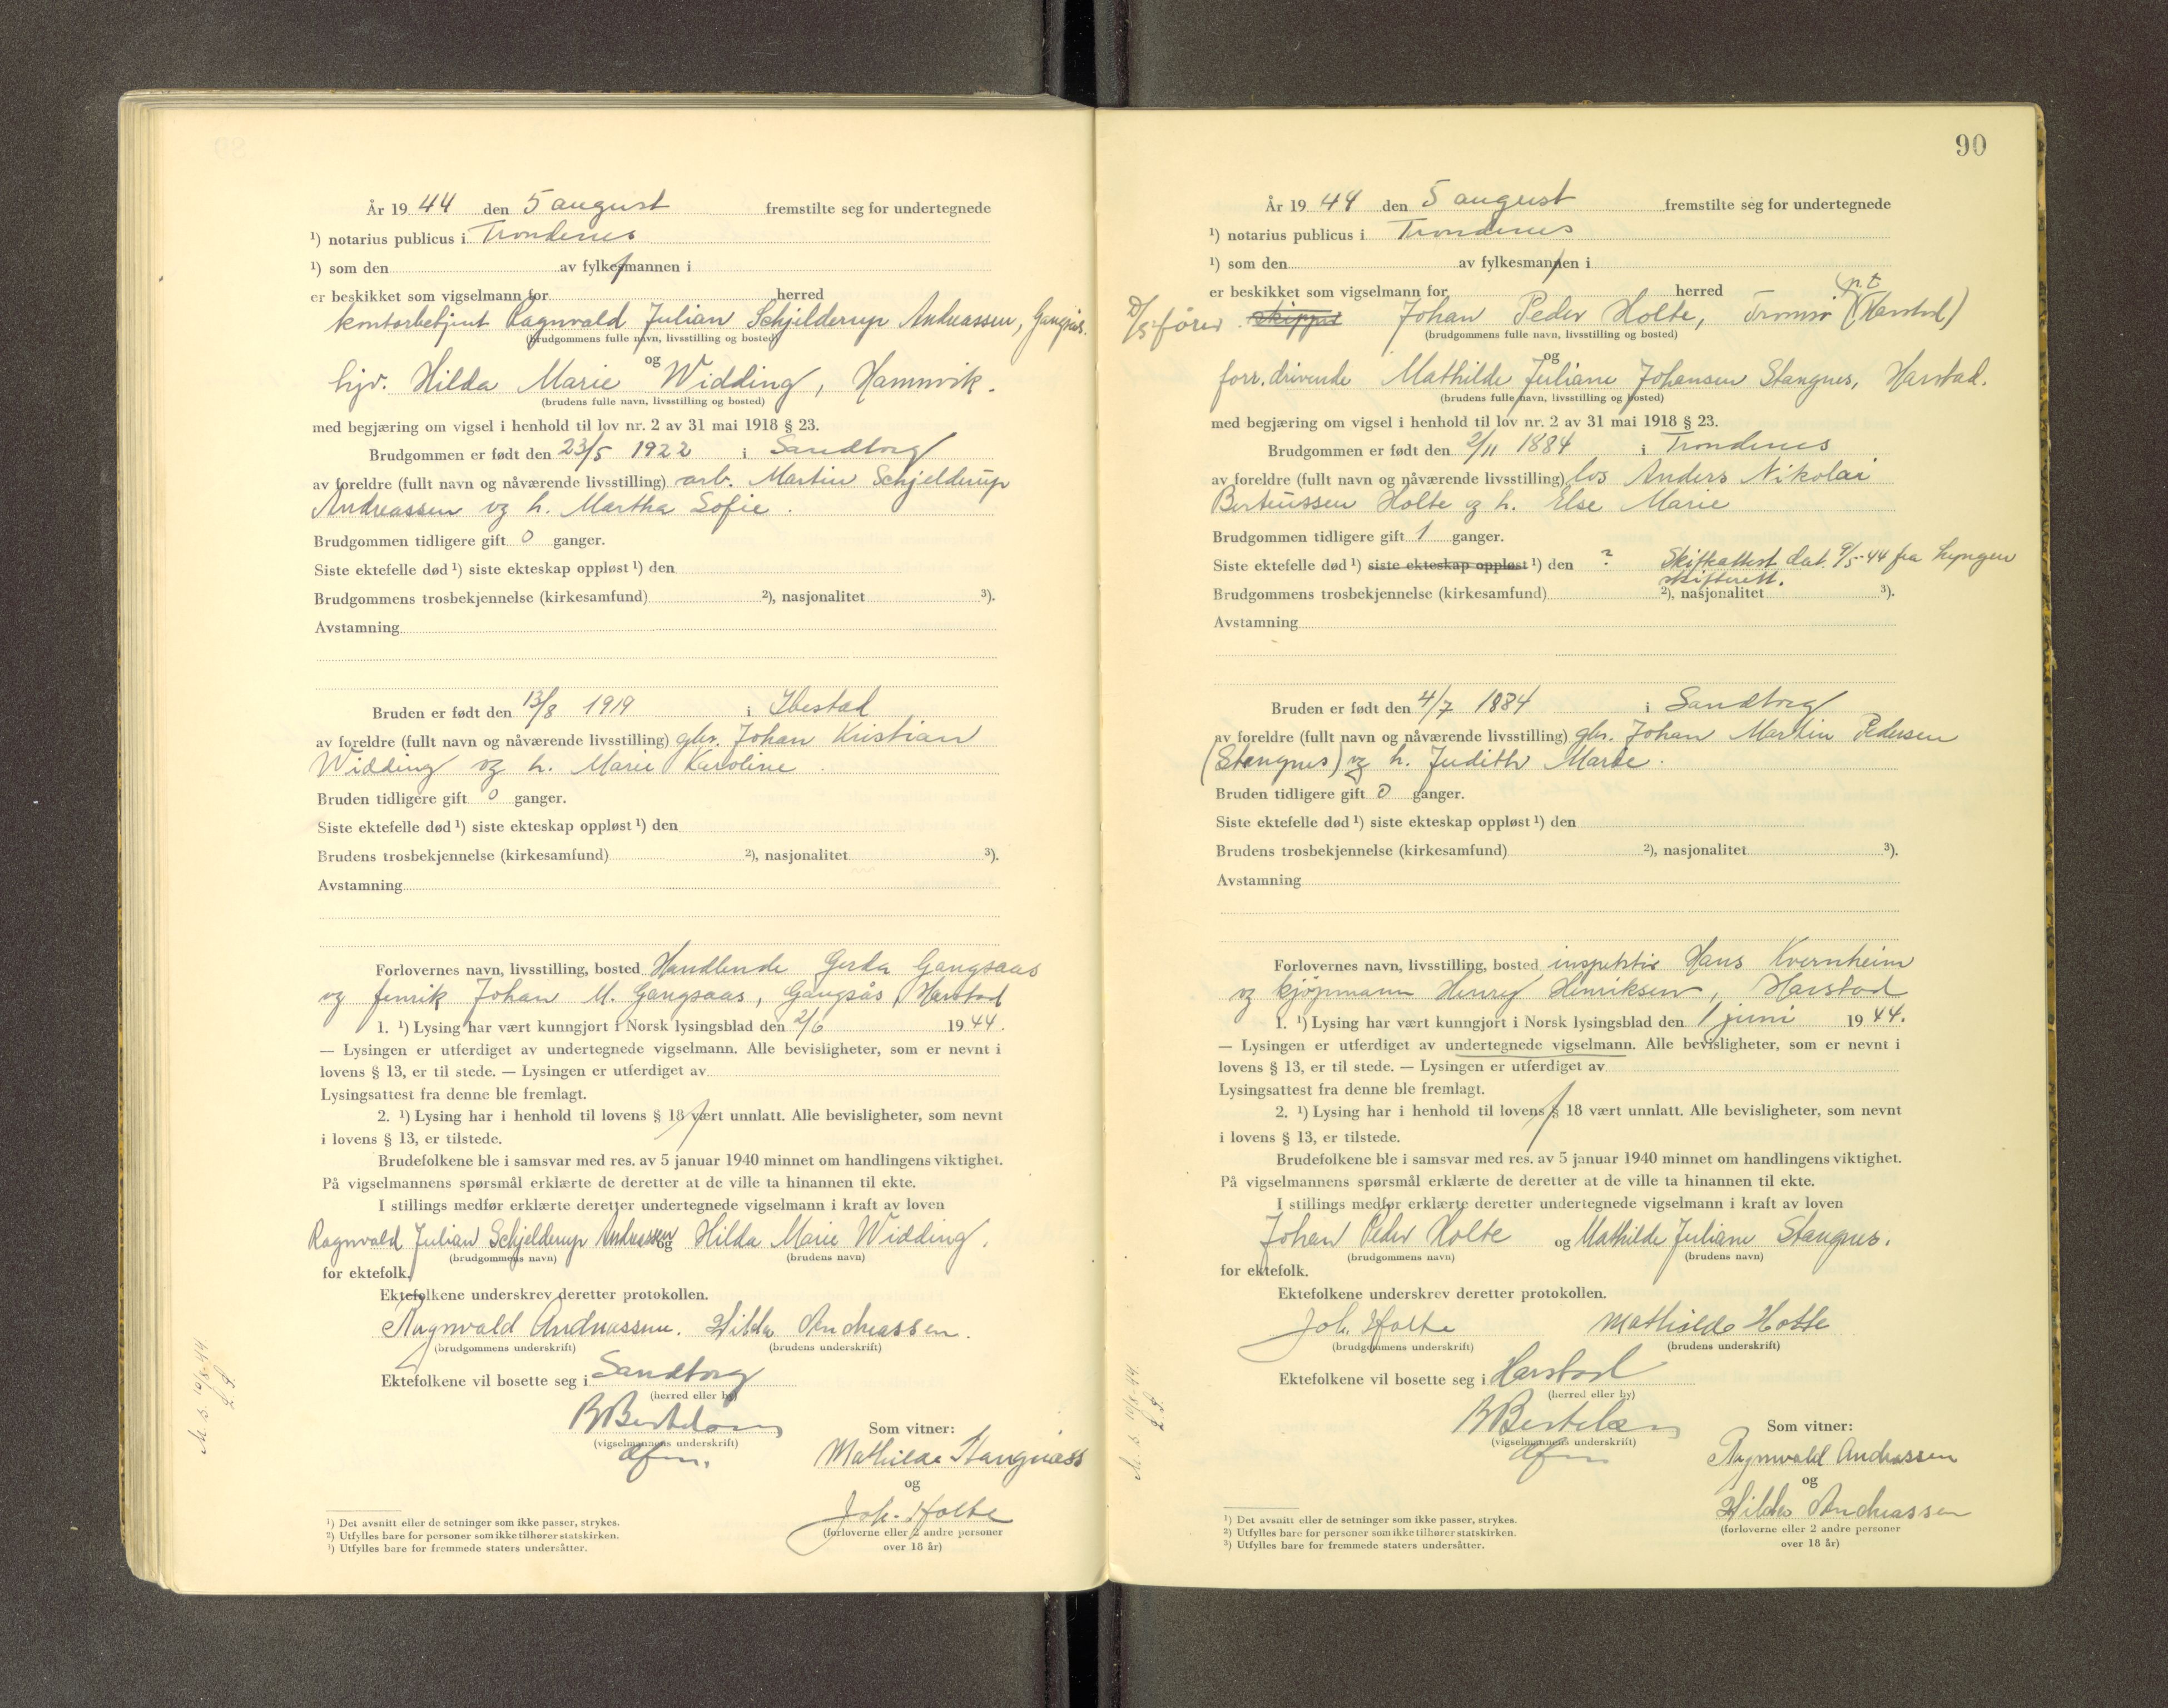 År 19 44 den 5 august fremstilte seg for undertegnede
¹) notarius publicus i Trondenes
¹) som den av fylkesmannen i
er beskikket som vigselmann for herred
kontorbetjent Ragnvald Julian Schjelderup Andreassen, Gangsås.
(brudgommens fulle navn, livsstilling og bosted)
og
hjv. Hilda Marie Widding, Hamnvik.
(brudens fulle navn, livsstilling og bosted)
med begjæring om vigsel i henhold til lov nr. 2 av 31 mai 1918 § 23.
Brudgommen er født den 23/5 1922 i Sandtorg
av foreldre (fullt navn og nåværende livsstilling) arb. Martin Schjelderup
Andreassen og h. Martha Sofie.
Brudgommen tidligere gift 0 ganger.
Siste ektefelle død ¹) siste ekteskap oppløst ¹) den
Brudgommens trosbekjennelse (kirkesamfund) ²), nasjonalitet ³).
Avstamning
Bruden er født den 13/8 1919 i Ibestad
av foreldre (fullt navn og nåværende livsstilling) gbr. Johan Kristian
Widding og h. Marie Karoline.
Bruden tidligere gift 0 ganger.
Siste ektefelle død ¹) siste ekteskap oppløst ¹) den
Brudens trosbekjennelse (kirkesamfund) ²), nasjonalitet ³).
Avstamning
Forlovernes navn, livsstilling, bosted Handlende Gerda Gangsaas
og fenrik Johan M. Gangsaas, Gangsås, Harstad
1. ¹) Lysing har vært kunngjort i Norsk lysingsblad den 2/6 19 44.
— Lysingen er utferdiget av undertegnede vigselmann. Alle bevisligheter, som er nevnt i
lovens § 13, er til stede. — Lysingen er utferdiget av
Lysingsattest fra denne ble fremlagt.
2. ¹) Lysing har i henhold til lovens § 18 vært unnlatt. Alle bevisligheter, som nevnt
i lovens § 13, er tilstede.
Brudefolkene ble i samsvar med res. av 5 januar 1940 minnet om handlingens viktighet.
På vigselmannens spørsmål erklærte de deretter at de ville ta hinannen til ekte.
I stillings medfør erklærte deretter undertegnede vigselmann i kraft av loven
Ragnvald Julian Schjelderup Andreassen og Hilda Marie Widding.
(brudgommens navn) (brudens navn)
for ektefolk.
Ektefolkene underskrev deretter protokollen.
Ragnvald Andreassen. Hilda Andreassen.
(brudgommens underskrift) (brudens underskrift)
Ektefolkene vil bosette seg i Sandtorg
(herred eller by)
(vigselmannens underskrift)
Som vitner:
Mathilde Stangnæss
og
Joh. Holte
(forloverne eller 2 andre personer
over 18 år)
¹) Det avsnitt eller de setninger som ikke passer, strykes.
²) Utfylles bare for personer som ikke tilhører statskirken.
³) Utfylles bare for fremmede staters undersåtter.
90
År 19 44 den 5 august fremstilte seg for undertegnede
¹) notarius publicus i Trondenes
¹) som den av fylkesmannen i
er beskikket som vigselmann for herred
D/S fører skipper Johan Peder Holte, Tromsø (p.t. Harstad)
(brudgommens fulle navn, livsstilling og bosted)
og
forr.drivende Mathilde Juliane Johansen Stangnes, Harstad.
(brudens fulle navn, livsstilling og bosted)
med begjæring om vigsel i henhold til lov nr. 2 av 31 mai 1918 § 23.
Brudgommen er født den 2/11 1884 i Trondenes
av foreldre (fullt navn og nåværende livsstilling) los Anders Nikolai
Berteussen Holte og h. Else Marie
Brudgommen tidligere gift 1 ganger.
Siste ektefelle død ¹) siste ekteskap oppløst ¹) den ? Skifteattest dat. 9/5-44 fra Lyngen
skifterett.
Brudgommens trosbekjennelse (kirkesamfund) ²), nasjonalitet ³).
Avstamning
Bruden er født den 4/7 1884 i Sandtorg
av foreldre (fullt navn og nåværende livsstilling) gbr. Johan Martin Pedersen
(Stangnes) og h. Judith Marie.
Bruden tidligere gift 0 ganger.
Siste ektefelle død ¹) siste ekteskap oppløst ¹) den
Brudens trosbekjennelse (kirkesamfund) ²), nasjonalitet ³).
Avstamning
Forlovernes navn, livsstilling, bosted inspektør Hans Kvernheim
og kjøpmann Henry Henriksen, Harstad
1. ¹) Lysing har vært kunngjort i Norsk lysingsblad den 1 juni 19 44.
— Lysingen er utferdiget av undertegnede vigselmann. Alle bevisligheter, som er nevnt i
lovens § 13, er til stede. — Lysingen er utferdiget av
Lysingsattest fra denne ble fremlagt.
2. ¹) Lysing har i henhold til lovens § 18 vært unnlatt. Alle bevisligheter, som nevnt
i lovens § 13, er tilstede.
Brudefolkene ble i samsvar med res. av 5 januar 1940 minnet om handlingens viktighet.
På vigselmannens spørsmål erklærte de deretter at de ville ta hinannen til ekte.
I stillings medfør erklærte deretter undertegnede vigselmann i kraft av loven
Johan Peder Holte og Mathilde Juliane Stangnes.
(brudgommens navn) (brudens navn)
for ektefolk.
Ektefolkene underskrev deretter protokollen.
Joh. Holte Mathilde Holte
(brudgommens underskrift) (brudens underskrift)
Ektefolkene vil bosette seg i Harstad
(herred eller by)
(vigselmannens underskrift)
Som vitner:
Ragnvald Andreassen
og
Hilda Andreassen
(forloverne eller 2 andre personer
over 18 år)
¹) Det avsnitt eller de setninger som ikke passer, strykes.
²) Utfylles bare for personer som ikke tilhører statskirken.
³) Utfylles bare for fremmede staters undersåtter.